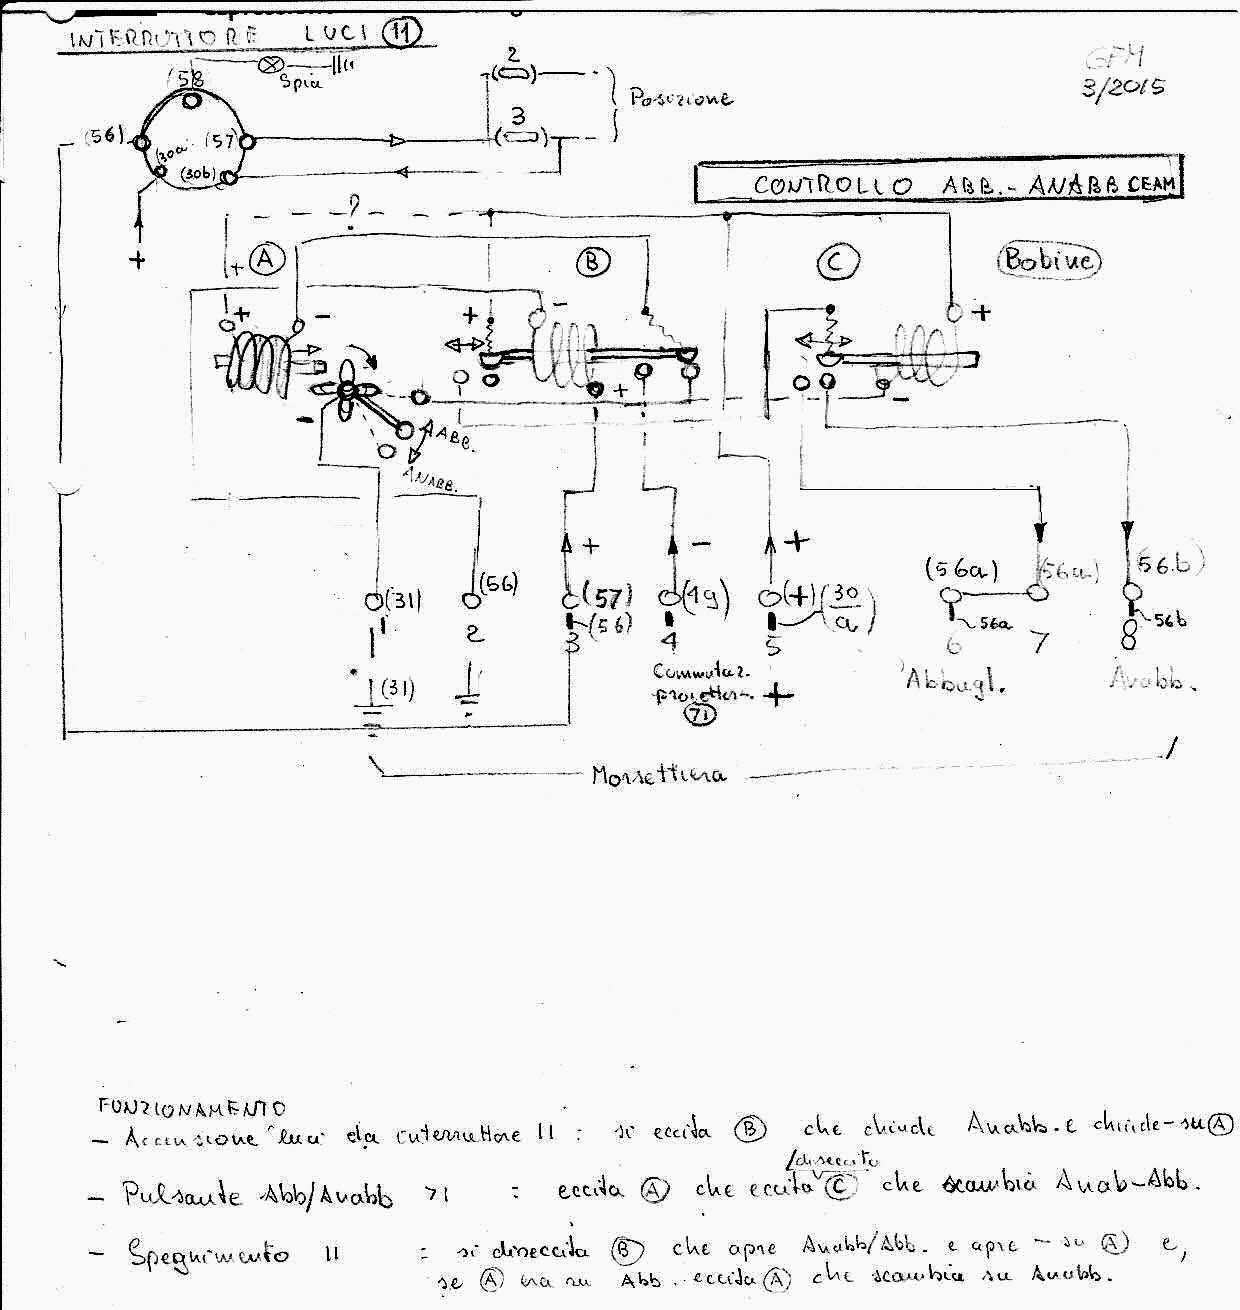 INTERRUTTORE LUCI 11
(58
Spia
2
3
Posizione
GFM
3/2015
(56)
(30a)
(57)
(30b)
+
CONTROLLO ABB.-ANABB CEAM
?
+ A
B
C
Bobine
+ -
+ -
+
+
-
-
ABB.
ANABB.
+ - +
(31)
(56)
(57)
(56)
(49)
(+)
(30/a)
(56a)
(56a)
(56.b)
56a
56b
1 2 3 4 5 6 7 8
(31)
Commutaz.
proiettor. +
71
Abbagl.
Anabb.
Morsettiera
FUNZIONAMENTO
- Accensione luci da interruttore 11 : si eccita B che chiude Anabb. e chiude - su A
/diseccita
- Pulsante Abb/Anabb 71 : eccita A che eccita C che scambia Anab-Abb.
- Spegnimento 11 : si diseccita B che apre Anabb/Abb. e apre - su A e,
se A era su Abb. eccita A che scambia su Anabb.